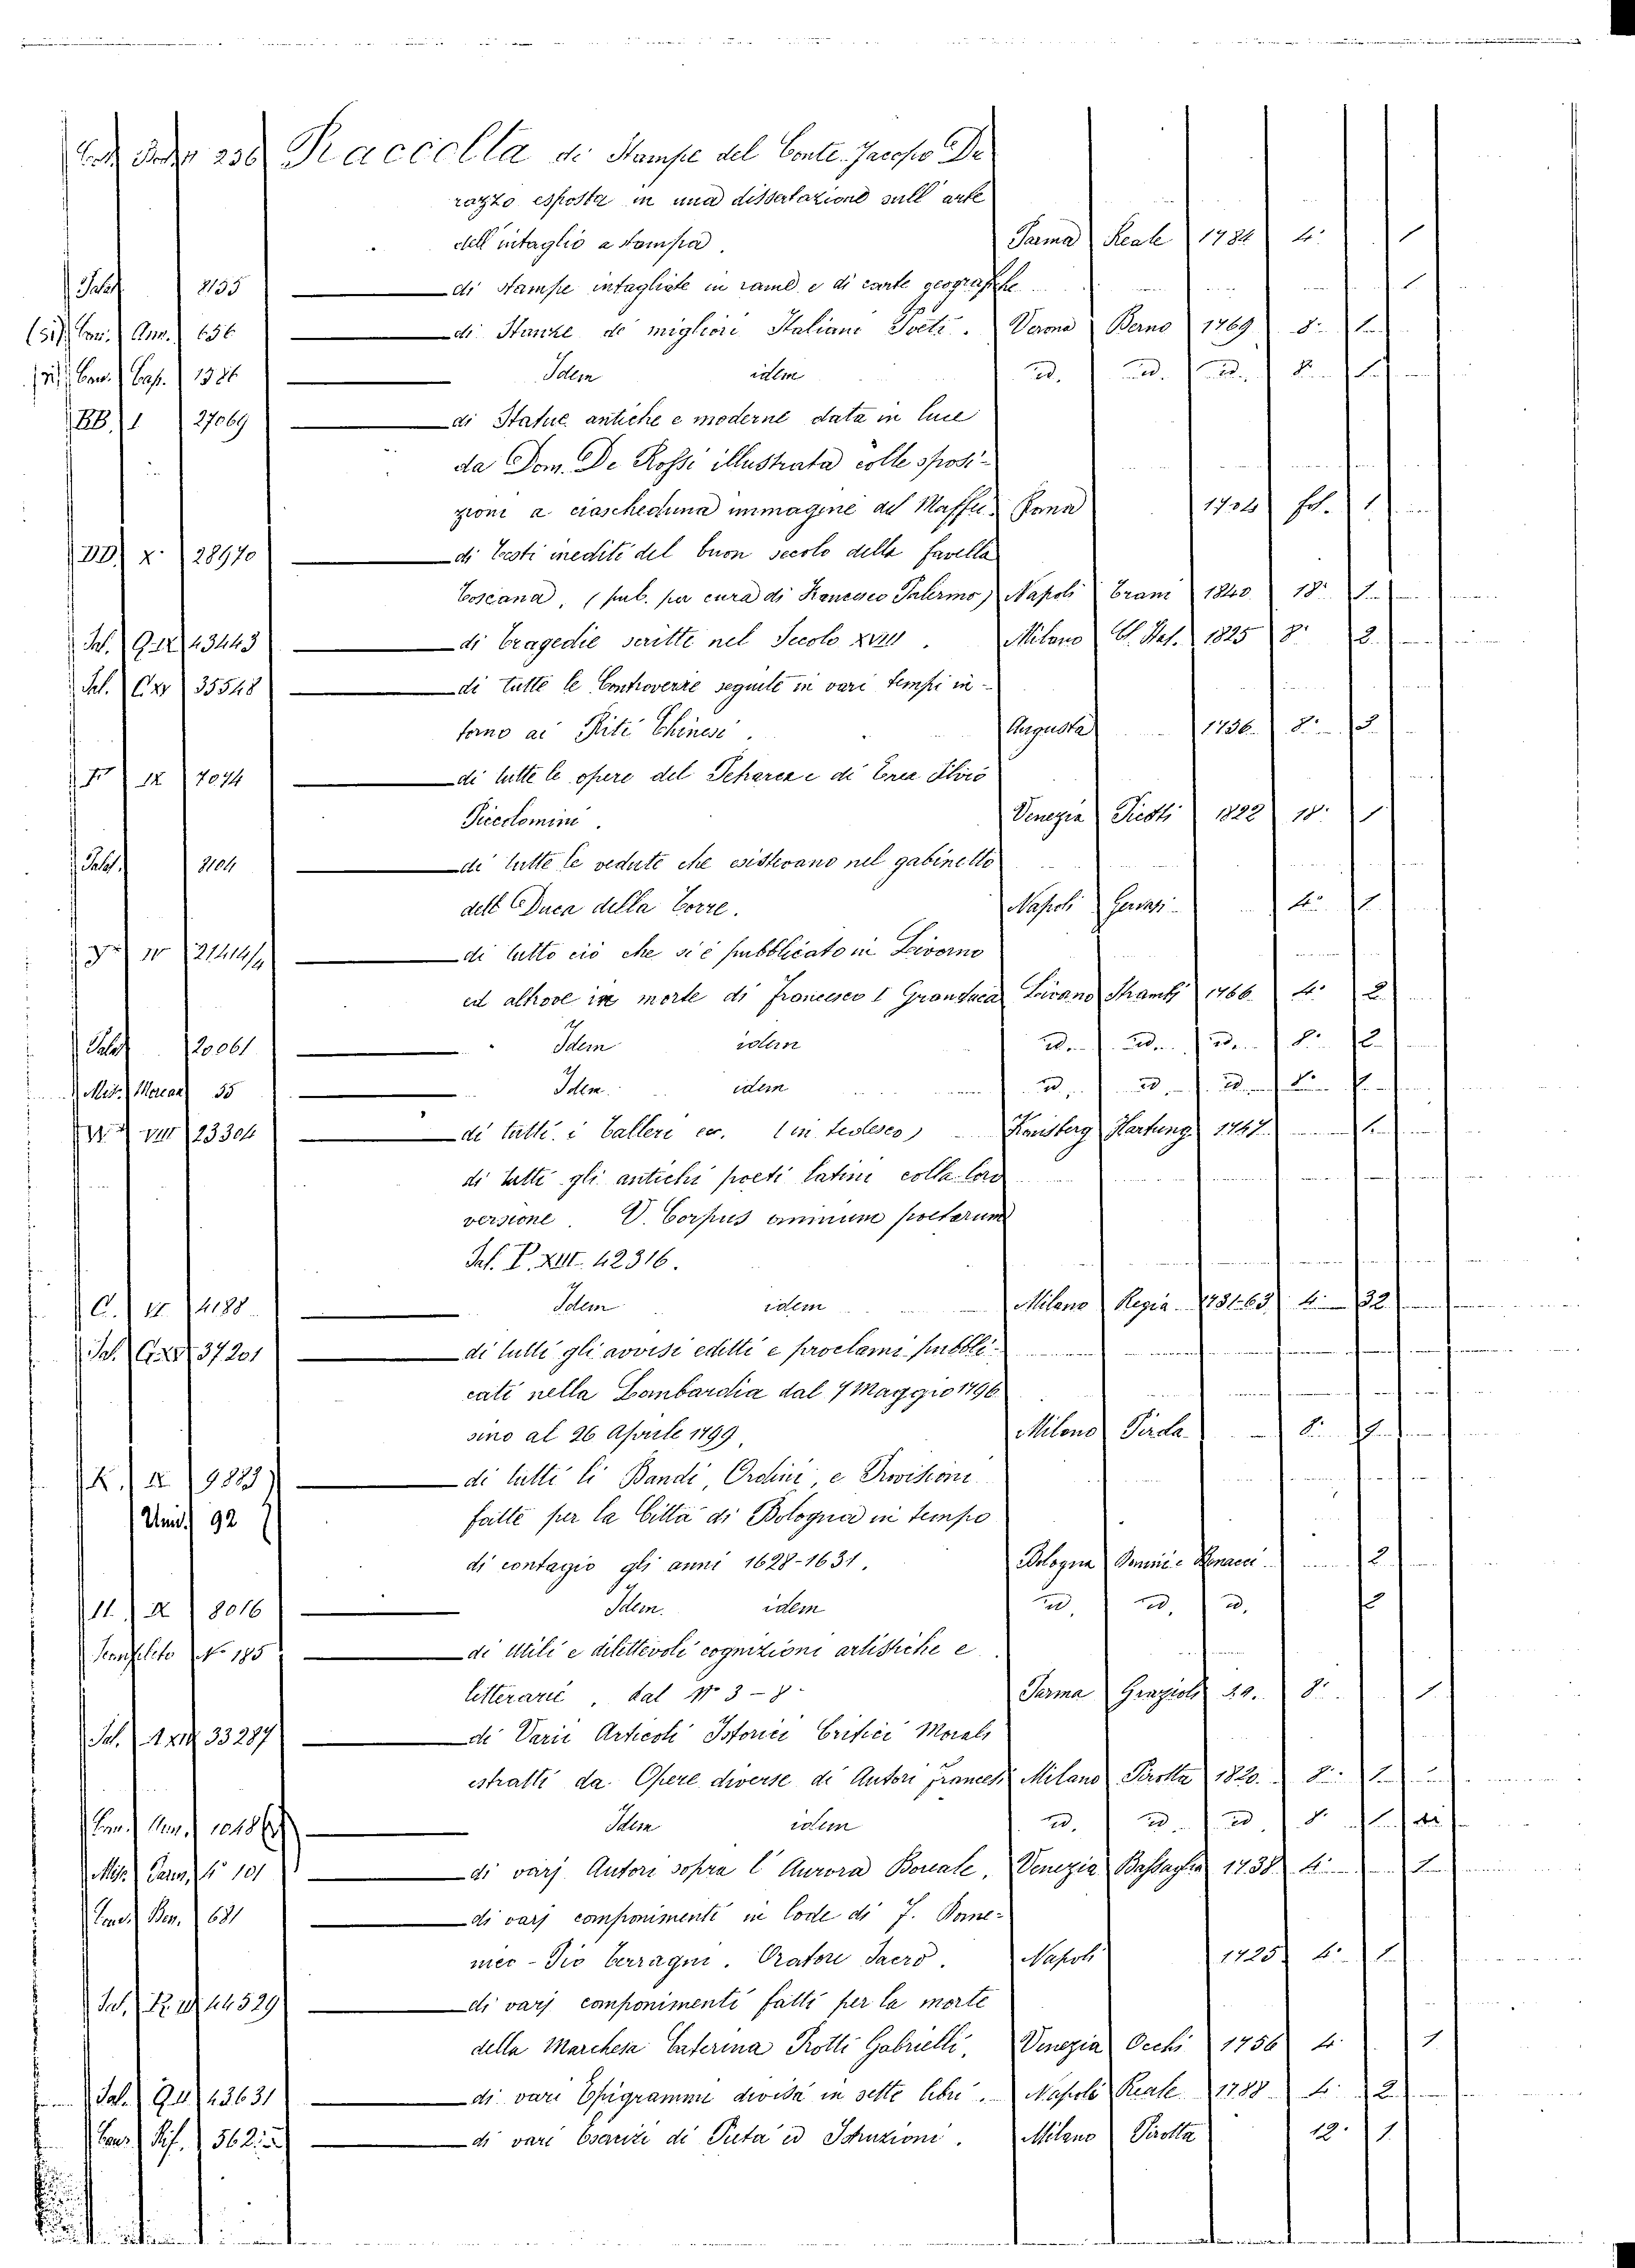 236 Raccolta di Stampe del Conte Jacopo Du
razzo esposta in una dissertazione sull'arte
dell'intaglio a stampa. Parma Reale 1784 4° 1
8135 — di Stampe intagliate in rame e di carte geografiche 1
Con. Ann. 656 — di Stanze de migliori Italiani Poeti. Verona Berno 1769 8° 1
Con. Cap. 1386 — Idem idem id. id. id. 8° 1
BB. 1 27069 — di Statue antiche e moderne data in luce
da Dom. De Rossi illustrata colle sposi-
zioni a ciascheduna immagine del Maffei Roma 1704 fol. 1
DD. X. 28970 — di Testi inediti del buon secolo della favella
Toscana, (pub. per cura di Francesco Palermo) Napoli Trani 1840 18° 1
Sal. 43443 — di Tragedie scritte nel Secolo XVIII. Milano Cl. Ital. 1825 8° 2
Sal. 35548 — di tutte le Controverzie seguite in vari tempi in-
torno ai Riti Chinesi. Augusta 1736 8° 3
IX 7074 — di tutte le opere del Scharez e di Enea Silvio
Picolomini. Venezia Picotti 1822 18° 1
8104 — di tutte le vedute che esistevano nel gabinetto
dell Duca della Torre. Napoli 4° 1
21414/4 — di tutto ciò che si è pubblicato in Livorno
ed altrove in morte di Francesco I Granduca Livorno 1766 4° 2
20061 — Idem idem id. id. id. 8° 2
Misc. Morcar 35 — Idem idem id. id. id.
VIII 23304 — di tutti i Talleri ec. (in tedesco) Konisberg Hartung 1747 1
di tutti gli antichi poeti latini colla loro
versione. V. Corpus omnium poetarum
Sal. P. XIII. 42316.
C. VI 4188 — Idem idem Milano Regia 1731-63 4° 32
Sal. 37201 — di tutti gli avvisi editti e proclami pubbli-
cati nella Lombardia dal 9 Maggio 1796
sino al 26 Aprile 1799 Milano Pirola 8° 9
K. IX 9883 — di tutti li Bandi, Ordini, e Provisioni
Unid. 92 fatte per la Città di Bologna in tempo
di contagio gli anni 1628-1631. Bologna Benacci 2
H. X 8016 — Idem. idem id. id. id. 2
No. 185 — di Utili e dilettevoli cognizioni artistiche e
litterarie, dal No 3-8. Parma Grazioli 8° 1
Sal. 33287 — di Varii Articoli Istorici Critici Morali
estratti da Opere diverse di Autori francesi Milano Pirotta 1820 8° 1
Con. Ann. 10486 — Idem idem id. id. id. 8° 1
Misc. No 101 — di varj Autori sopra l'Aurora Boreale. Venezia Bassaglia 1738 4° 1
Con. Ben. 681 — di varj componimenti in lode di F. Dome-
nico - Pio Terragni. Oratore Sacro. Napoli 1725 4° 1
Sal. 44529 — di varj componimenti fatti per la morte
della Marchesa Caterina Trotti Gabrielli. Venezia Occhi 1756 4° 1
Sal. 43631 — di vari Epigrammi divisi in sette libri. Napoli Reale 1788 4° 2
Con. Rif. 562 — di vari Esercizi di Pietà ed Istruzioni. Milano Pirotta 12° 1